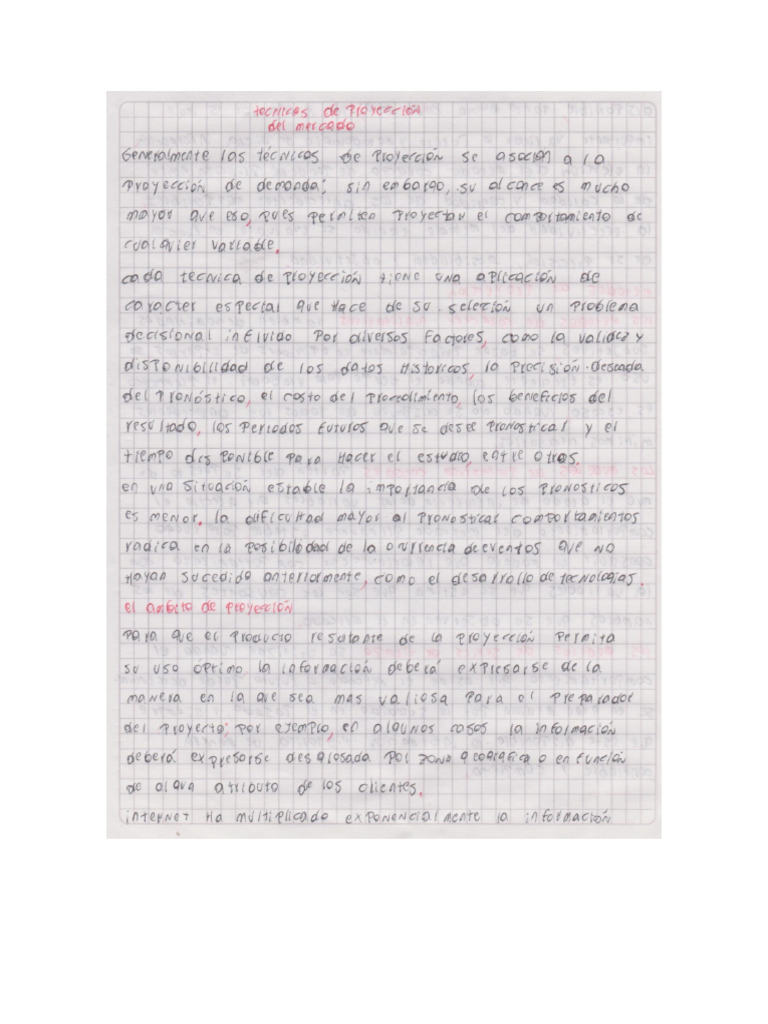 tecnicas de Proyección
del mercado
Generalmente las técnicas de Proyección se asocian a la
Proyección de demanda; sin embargo, su alcance es mucho
mayor que eso, pues permiten Proyectar el comportamiento de
cualquier variable.
cada tecnica de Proyección tiene una aplicación de
caracter especial que Hace de su selección un Problema
decisional infivido Por diversos Factores, como la validez y
disponibilidad de los datos Historicos, la Precisión deseada
del Pronóstico, el costo del Procedimiento, los beneficios del
resultado, los Periodos Futuros que se desee Pronosticar y el
tiempo disponible Para Hacer el estudio, entre otros.
en una situación estable la importancia de los Pronosticos
es menor. la dificultad mayor al Pronosticar comportamientos
radica en la Posibilidad de la ocurrencia de eventos que no
Hayan sucedido anteriormente, como el desarrollo de tecnologias.
el ambito de Proyección
Para que el Producto resultante de la Proyección Permita
su uso óptimo la información deberá expresarse de la
manera en la que sea mas valiosa Para el Preparador
del Proyecto; por ejemplo, en algunos casos la información
deberá expresarse desglosada Por zona geografica o en función
de algun atributo de los clientes.
internet Ha multiplicado exponencialmente la información